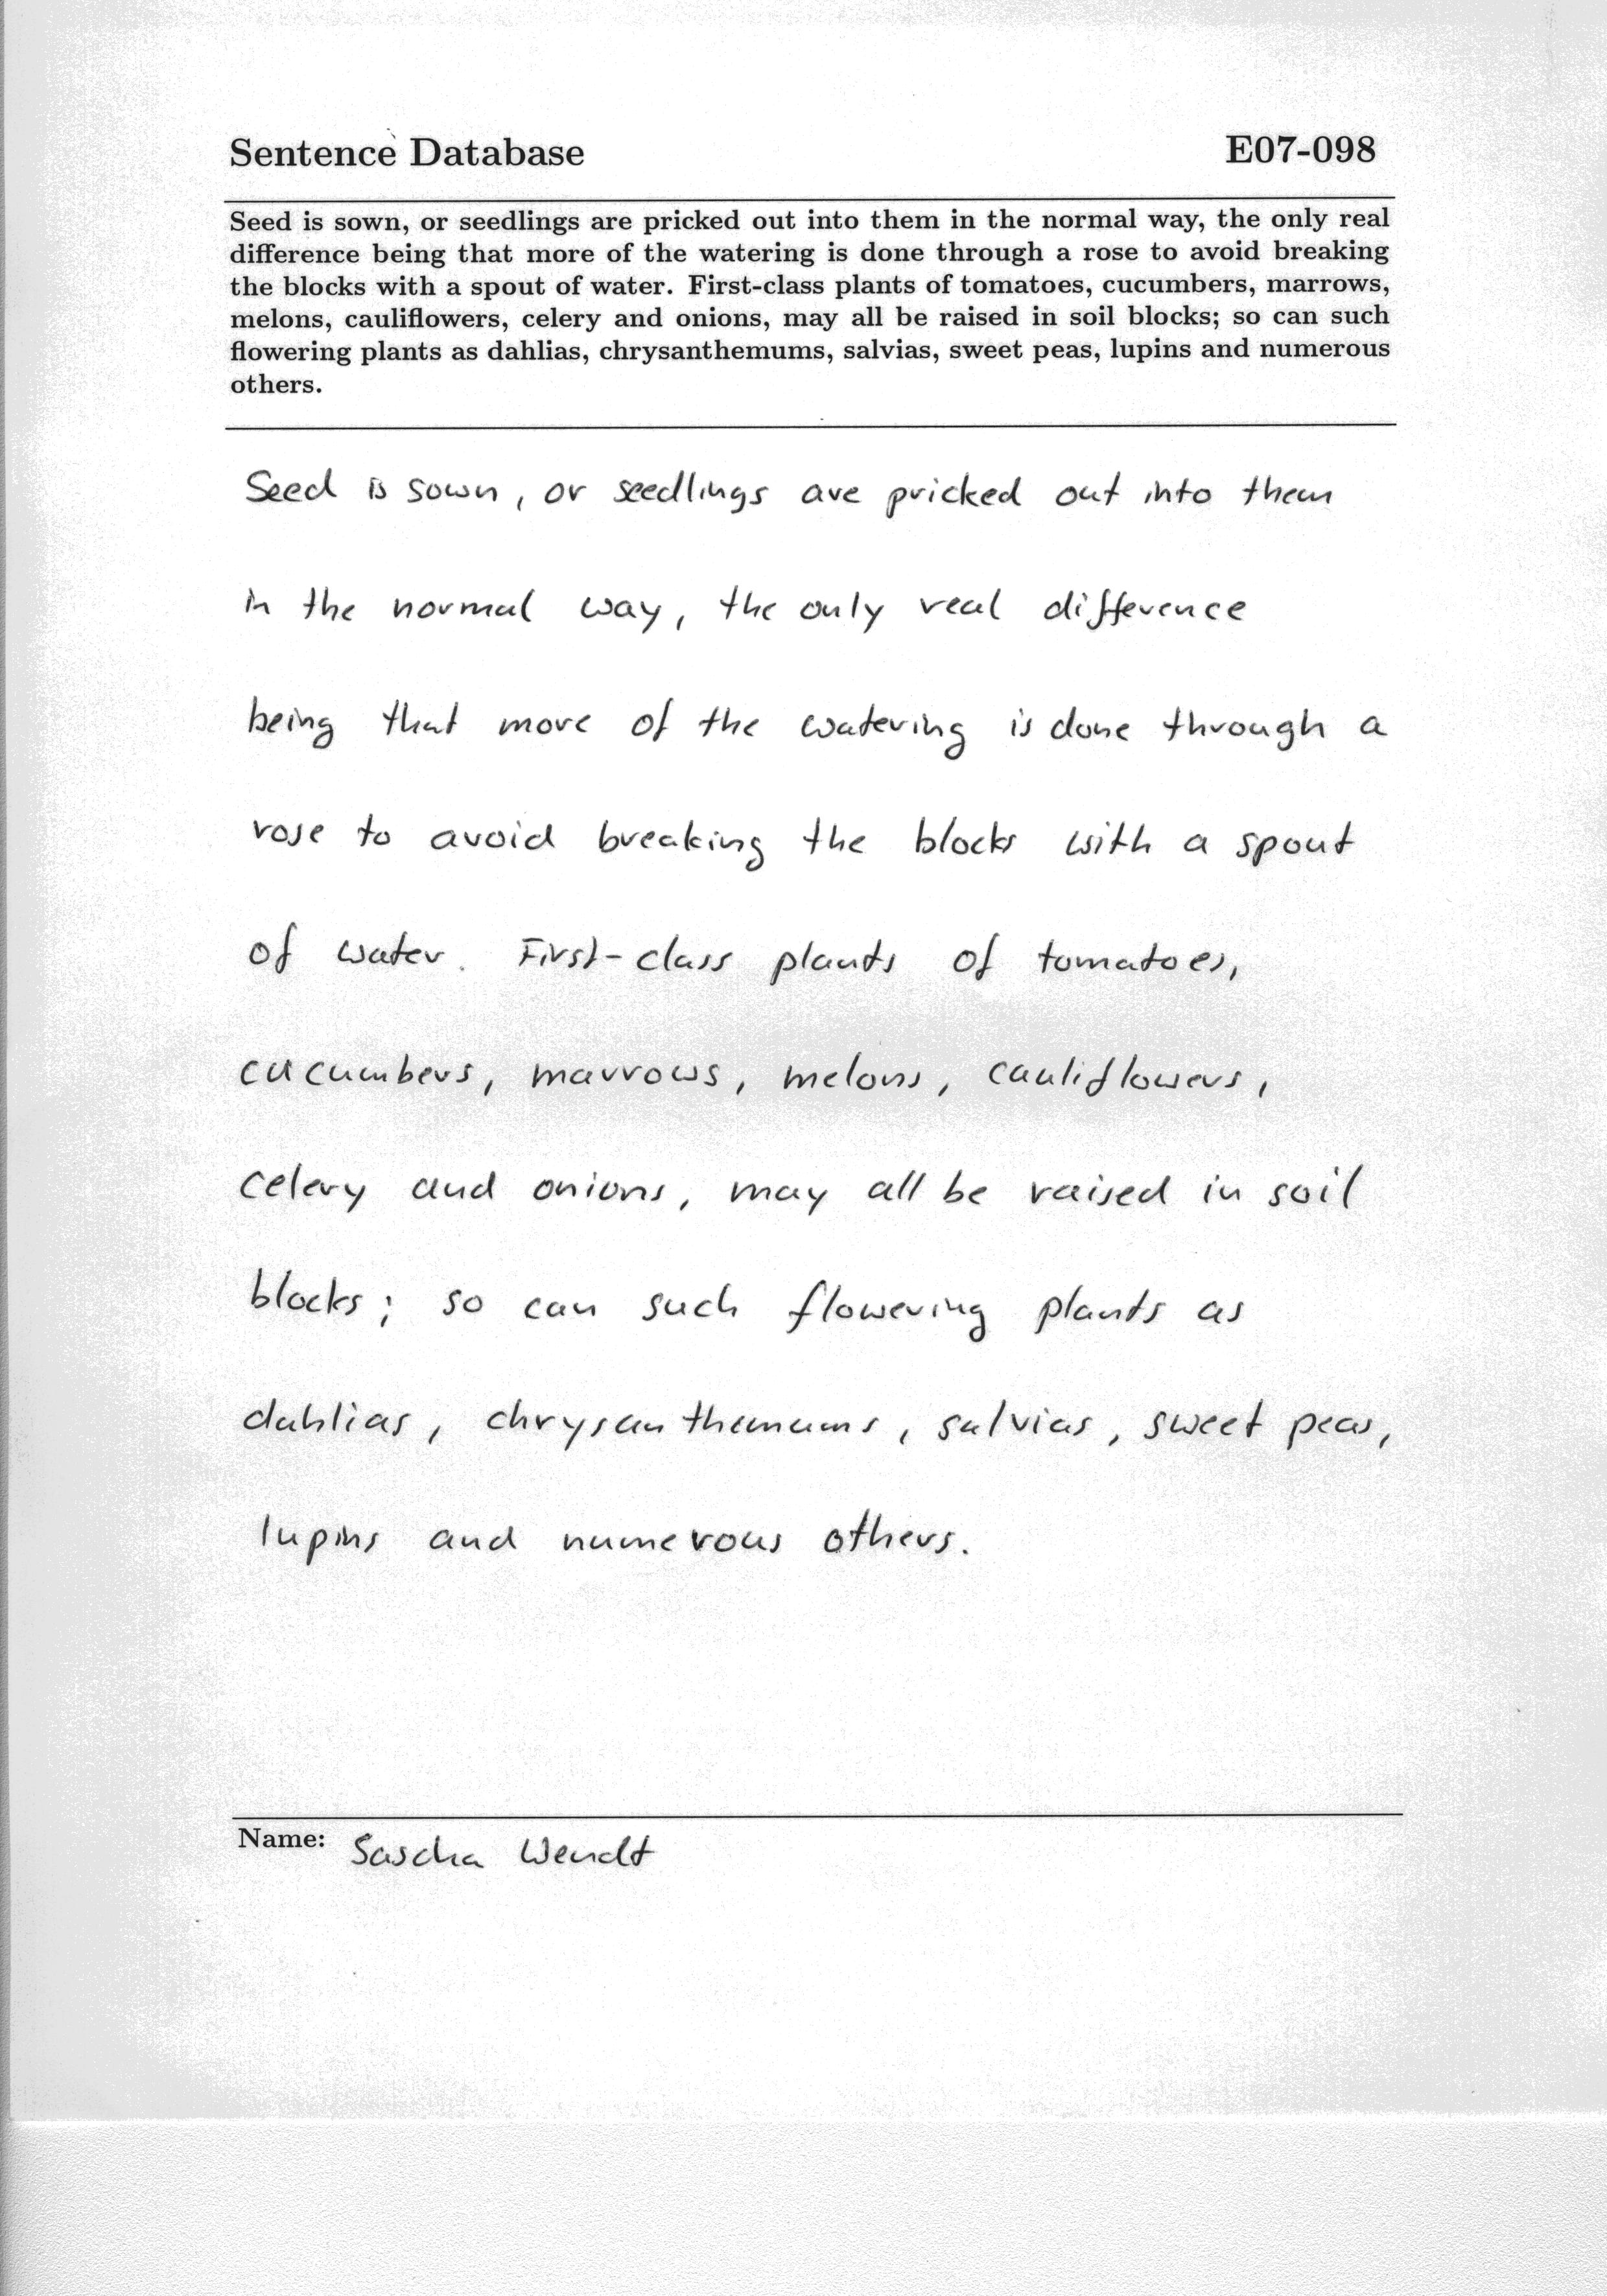 Sentence Database E07-098
Seed is sown, or seedlings are pricked out into them in the normal way, the only real
difference being that more of the watering is done through a rose to avoid breaking
the blocks with a spout of water. First-class plants of tomatoes, cucumbers, marrows,
melons, cauliflowers, celery and onions, may all be raised in soil blocks; so can such
flowering plants as dahlias, chrysanthemums, salvias, sweet peas, lupins and numerous
others.
Seed is sown, or seedlings are pricked out into them
in the normal way, the only real difference
being that more of the watering is done through a
rose to avoid breaking the blocks with a spout
of water. First-class plants of tomatoes,
cucumbers, marrows, melons, cauliflowers,
celery and onions, may all be raised in soil
blocks; so can such flowering plants as
dahlias, chrysanthemums, salvias, sweet peas,
lupins and numerous others.
Name: Sascha Wendt